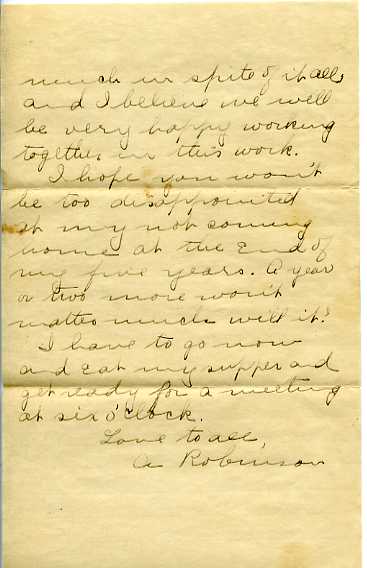 much in spite of it all,
and I believe we will
be very happy working
together in this work.
I hope you won't
be too disappointed
at my not coming
home at the End of
my five years. A year
or two more won't
matter much will it?
I have to go now
and Eat my supper and
get ready for a meeting
at six o'clock.
Love to all,
A Robinson